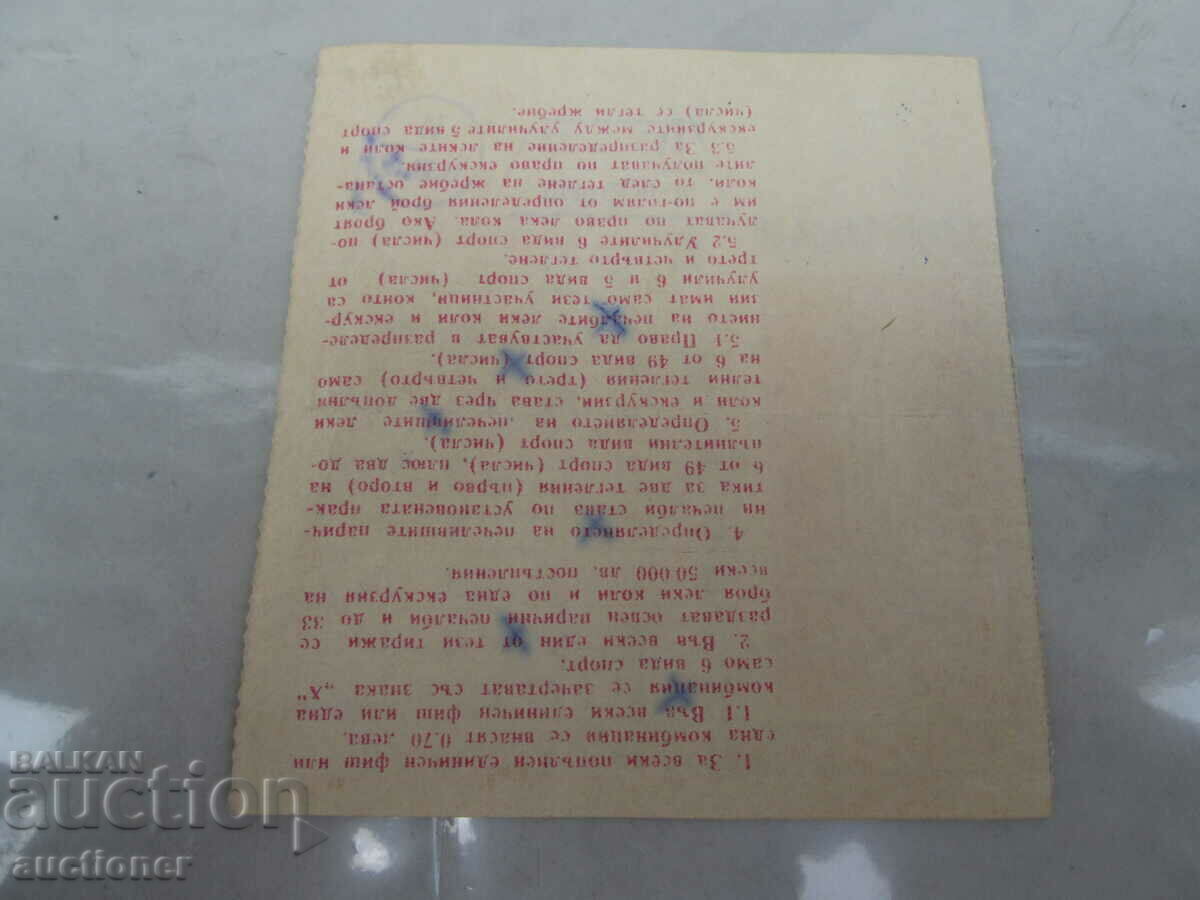 1. За всеки попълнен единичен фиш или
една комбинация се внасят 0.70 лева.
1.1 Във всеки единичен фиш или една
комбинация се зачертават със знака „X"
само 6 вида спорт.
2. Във всеки един от тези тиражи се
раздават освен парични печалби и до 33
броя леки коли и по една екскурзия на
всеки 50 000 лв. постъпления.
4. Определянето на печелившите парич-
ни печалби става по установената прак-
тика за две тегления (първо и второ) на
6 от 49 вида спорт (числа), плюс два до-
пълнителни вида спорт (числа).
5. Определянето на печелившите леки
коли и екскурзии, става чрез две допъл-
телни тегления (трето и четвърто) само
на 6 от 49 вида спорт (числа).
5.1 Право да участвуват в разпределе-
нието на печалбите леки коли и екскур-
зии имат само тези участници, които са
улучили 6 и 5 вида спорт (числа) от
трето и четвърто теглене.
5.2 Улучилите 6 вида спорт (числа) по-
лучават по право лека кола. Ако броят
им е по-голям от определения брой леки
коли, то след теглене на жребие остана-
лите получават по право екскурзия.
5.3 За разпределение на леките коли и
екскурзиите между улучилите 5 вида спорт
(числа) се тегли жребие.
BALKAN
auction
auctioner